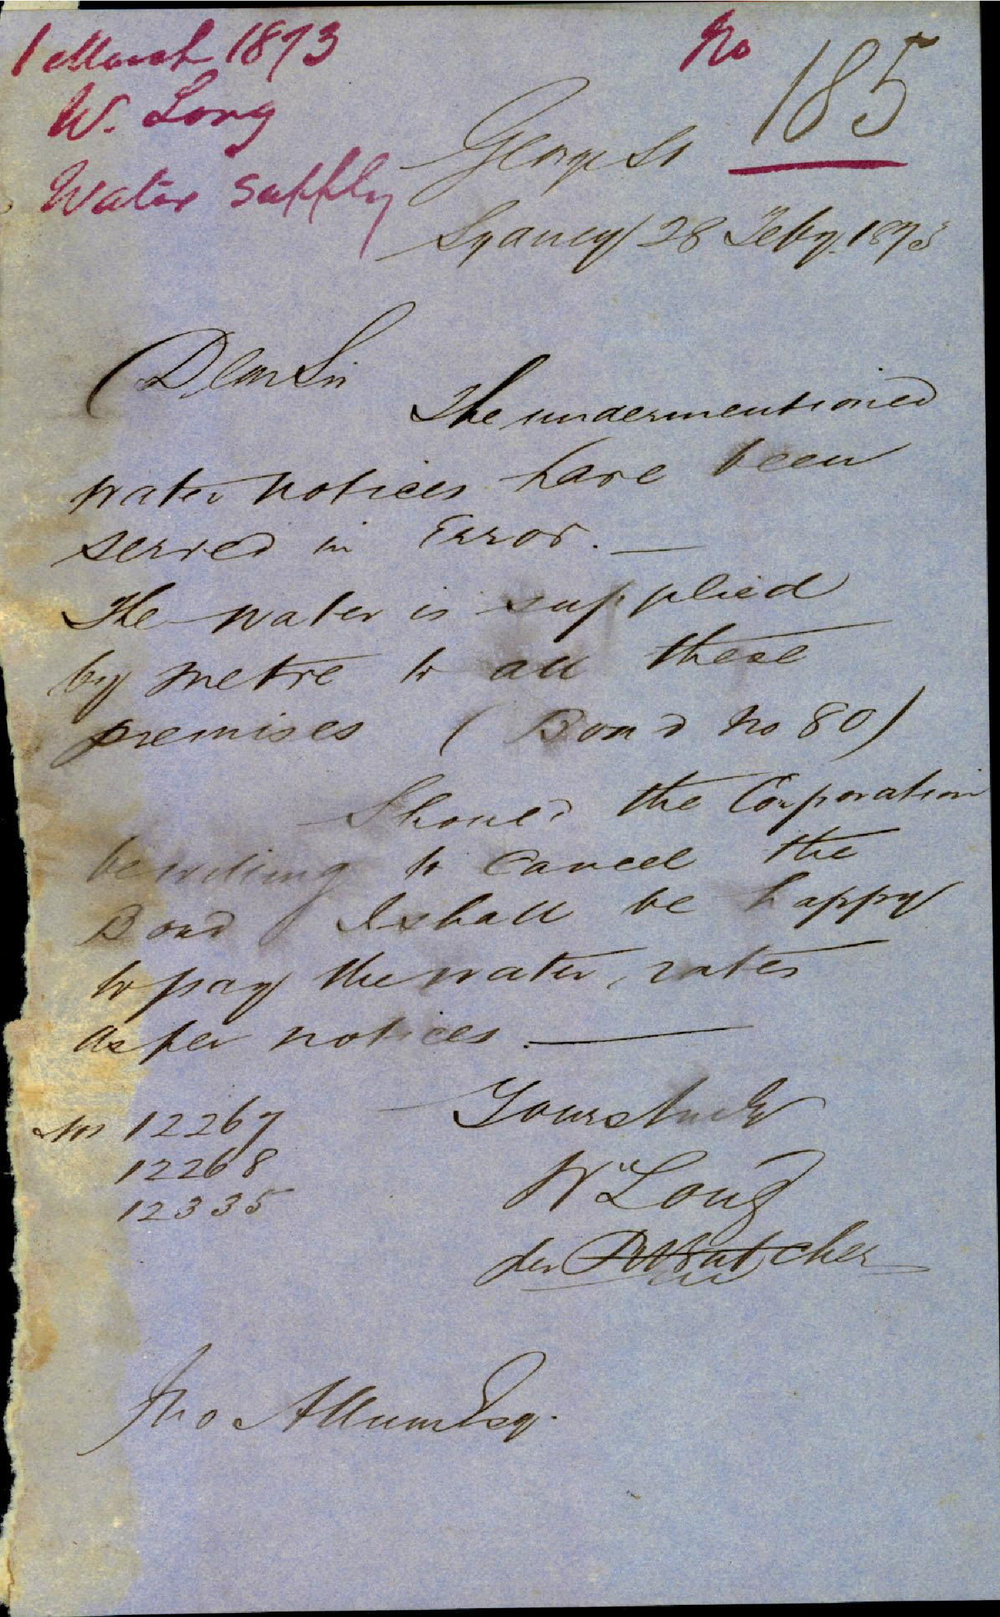 1 March 1873
W. Long
Water supply
No 185
George St
Sydney 28 Feby. 1873
Dear Sir
The undermentioned
water notices have been
served in Error. —
The water is supplied
by metre to all these
premises (Bond No 80)
Should the Corporation
be willing to Cancel the
Bond I shall be happy
to pay the water rates
as per notices. —
Nos 12267
12268
12335
Yours truly
Wm Long
per
Jno Allum Esq.